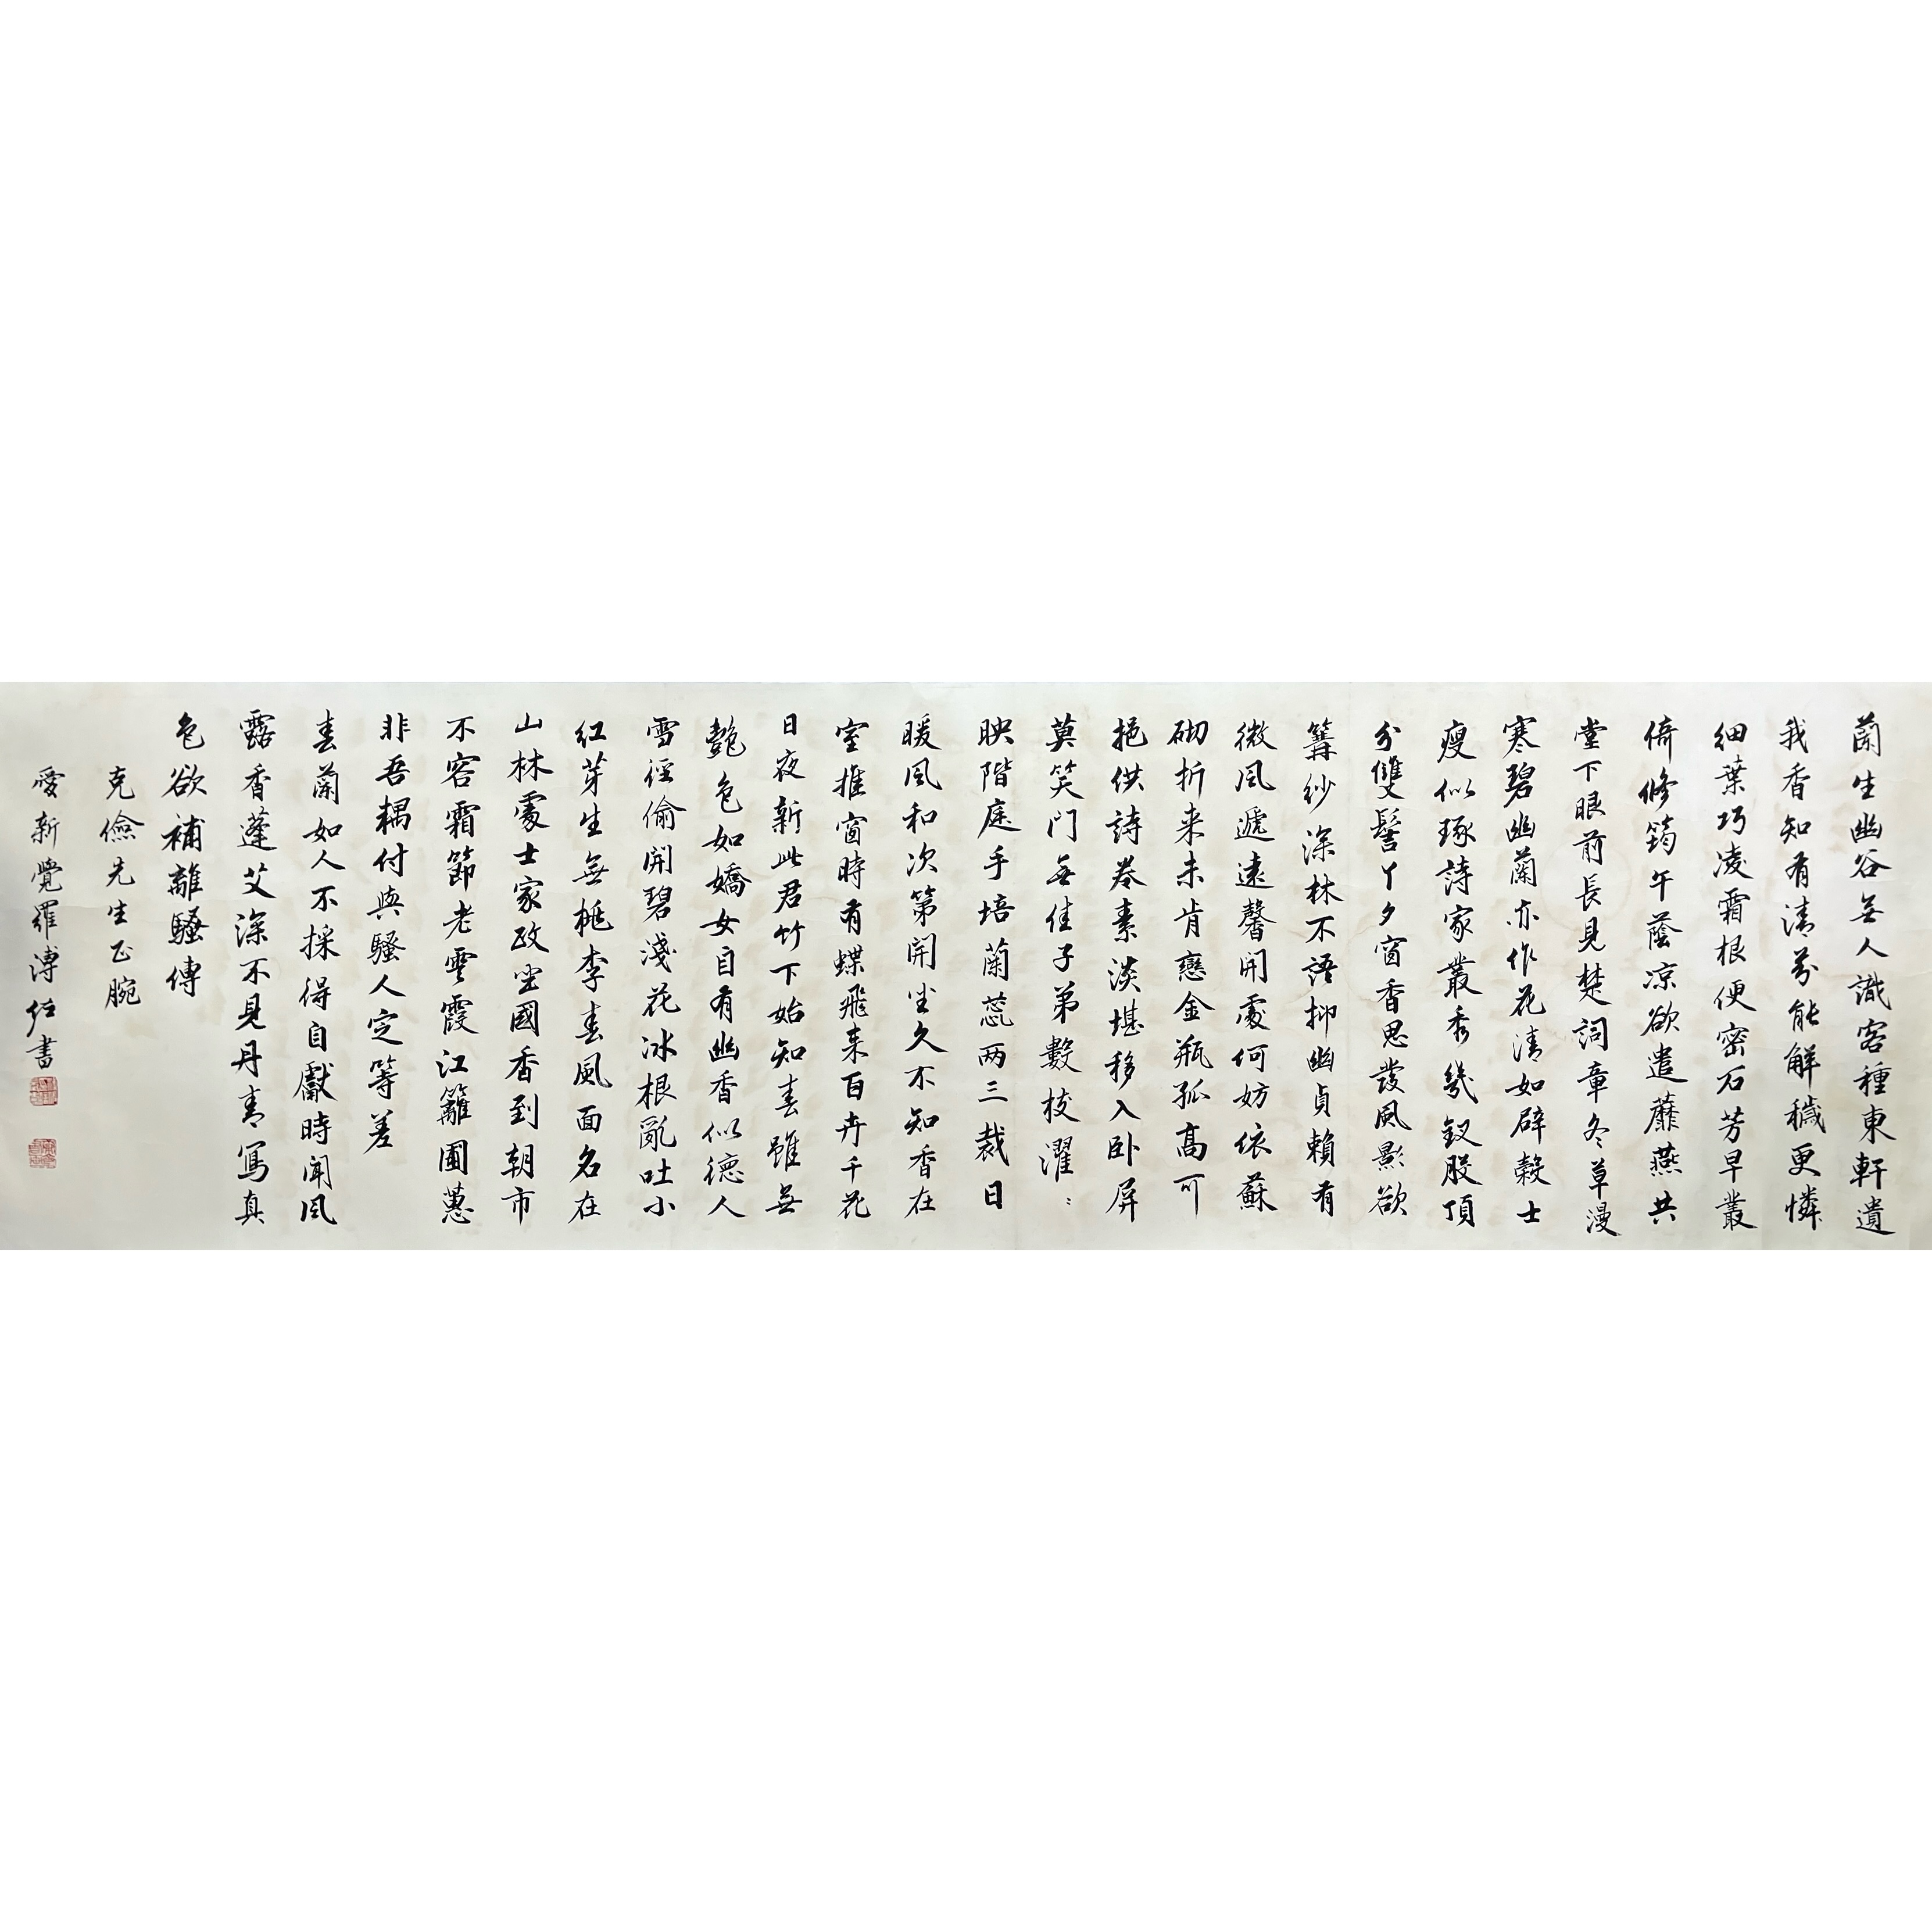 蘭生幽谷無人識客種東軒遺
我香知有清芬能解穢更憐
細葉巧凌霜根便密石芳早叢
倚修筠午蔭凉欲遣蘼蕪共
堂下眼前長見楚詞章冬草漫
寒碧幽蘭亦作花清如辟穀士
瘦似琢詩家叢秀幾釵股頂
分雙髻丫夕窗香思發風影欲
篝紗深林不語抑幽貞賴有
微風遞遠馨開處何妨依蘚
砌折来未肯戀金瓶孤高可
挹供詩卷素淡堪移入卧屏
莫笑門無佳子弟數枝濯〻
映階庭手培蘭蕊两三栽日
暖風和次第開坐久不知香在
室推窗時有蝶飛来百卉千花
日夜新此君竹下始知春雖無
艷色如嬌女自有幽香似德人
雪徑偷開碧淺花冰根亂吐小
紅芽生無桃李春風面名在
山林處士家政坐國香到朝市
不容霜節老雲霞江籬圃蕙
非吾耦付與騷人定等差
春蘭如人不採得自獻時聞風
露香蓬艾深不見丹青寫真
色欲補離騷傳
克儉先生正腕
愛新覺羅溥任書